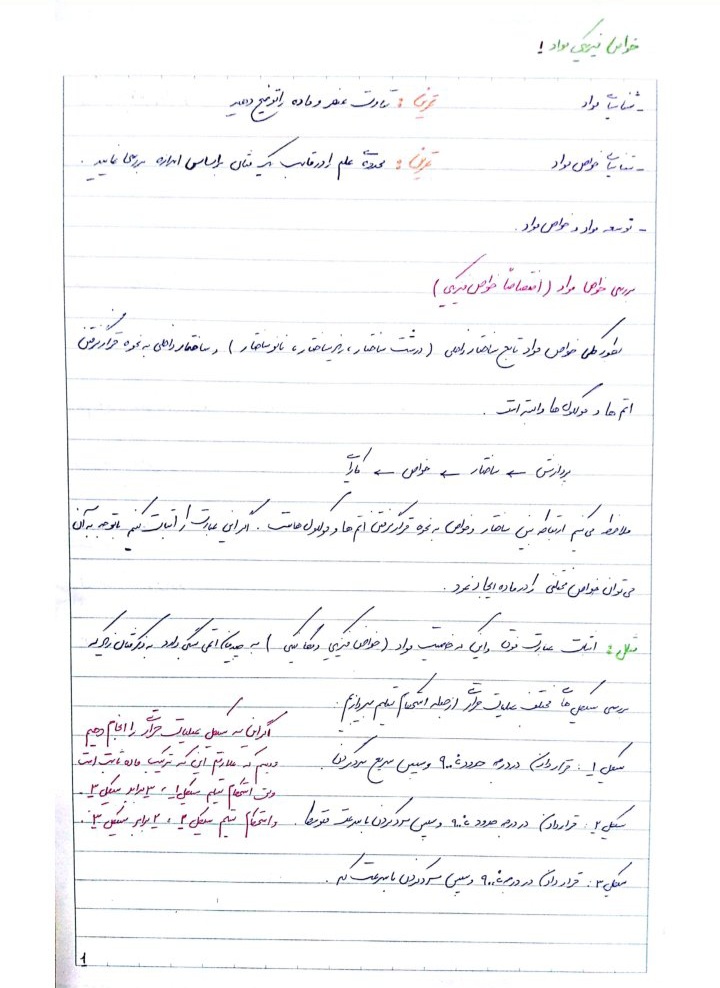 خواص فیزیکی مواد !
- شناسایی مواد تمرین : تفاوت عنصر و ماده را توضیح دهید
- شناسایی خواص مواد تمرین : محدوده علم را در قالب یک مثال براساس اندازه بررسی نمایید .
- توسعه مواد و خواص مواد .
بررسی خواص مواد ( اختصاصاً خواص فیزیکی )
بطور کلی خواص مواد تابع ساختار داخلی ( درشت ساختار ، ریزساختار ، نانوساختار ) و ساختار داخلی به نحوه قرارگرفتن
اتم ها و مولکول ها وابسته است .
پردازش ← ساختار ← خواص ← کارآیی
ملاحظه می کنیم ارتباط بین ساختار و خواص به نحوه قرارگرفتن اتم ها و مولکول هاست . اگر این عبارت را اثبات کنیم باتوجه به آن
می توان خواص مختلفی را در ماده ایجاد نمود .
مثال : اثبات عبارت فوق و اینکه خواص مواد ( خواص فیزیکی و مکانیکی ) به چیدمان اتمی بستگی دارد به ذکر مثال زیر که
بررسی سیکل های مختلف عملیات حرارتی از جمله استحکام تسلیم میپردازیم :
سیکل ۱ : قراردادن در درجه حدود ۹۰۰ وسپس سریع سردکردن .
سیکل ۲ : قراردادن در درجه حدود ۹۰۰ وسپس سردکردن با سرعت متوسط .
سیکل ۳ : قراردادن در درجه ۹۰۰ وسپس سردکردن با سرعت کم .
اگر این سه سیکل عملیات حرارتی را انجام دهیم
دیدیم که علارغم آن که ترکیب ماده ثابت است
ولی استحکام تسلیم سیکل ۱ ، ۳ برابر سیکل ۳ .
و استحکام تسلیم سیکل ۲ ، ۲ برابر سیکل ۳ .
1